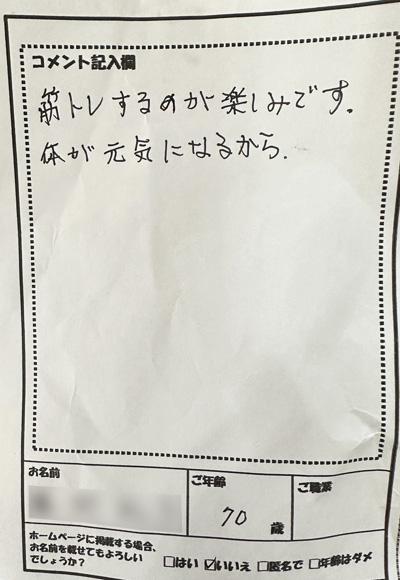 コメント記入欄
筋トレするのが楽しみです。
体が元気になるから。
お名前
ご年齢
ご職業
70 歳
ホームページに掲載する場合、
お名前を載せてもよろしい
でしょうか?
□はい ☑いいえ □匿名で □年齢はダメ